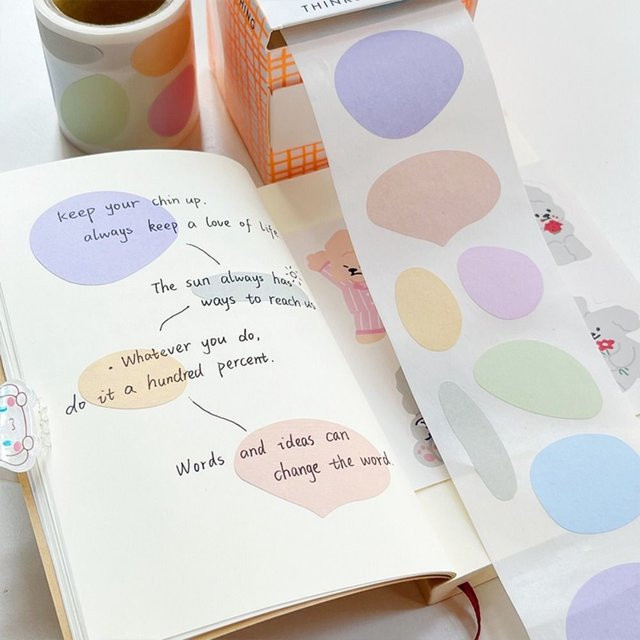 THINKS
keep your chin up.
always keep a love of life
The sun always has
ways to reach us
. Whatever you do,
do it a hundred percent.
Words and ideas can
change the word.